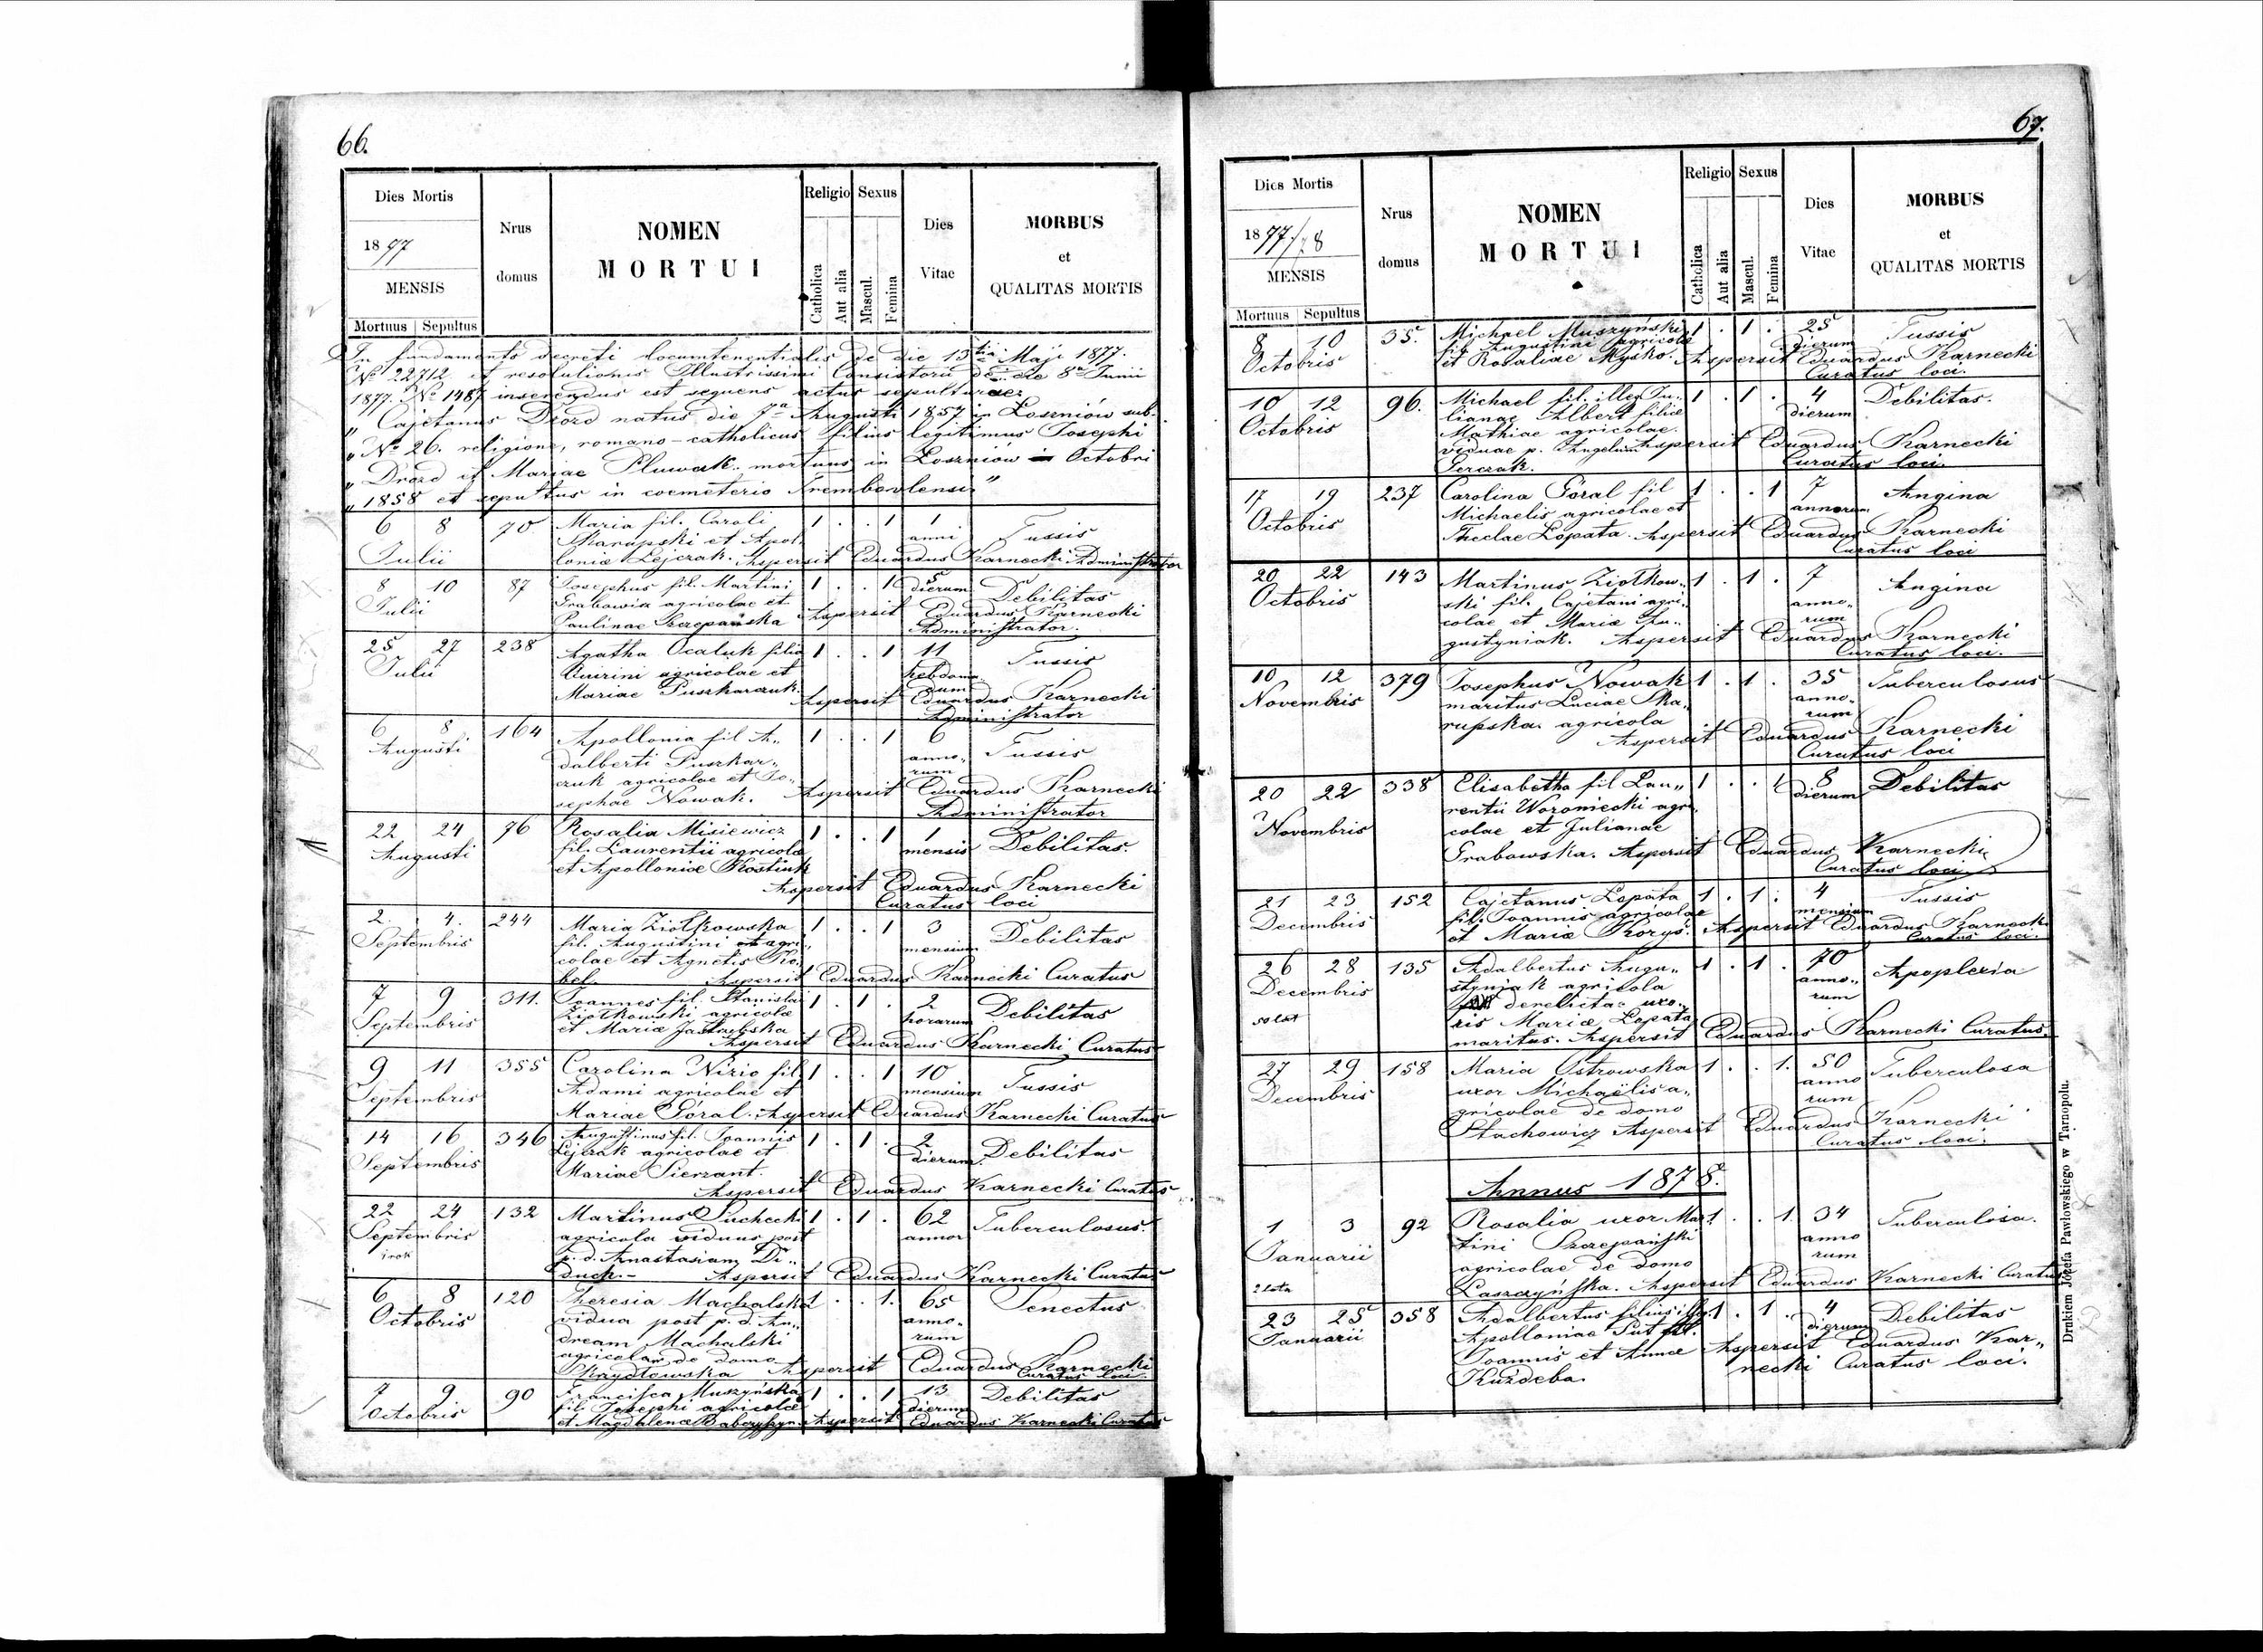 66.
Dies Mortis
1877
MENSIS
Mortuus Sepultus
Nrus domus
NOMEN MORTUI
Religio
Catholica
Aut alia
Sexus
Mascul.
Femina
Dies Vitae
MORBUS et QUALITAS MORTIS
In fundamento decreti locumtenentialis de die 13tia Maji 1877.
No 22712 et resolutionis Illustrissimi Consistorii de die 8a Junii
1877. No 1487 inserendus est sequens actus sepulturae:
" Cajetanus Drozd natus die 7a Augusti 1857 in Łoszniów sub.
" No 26. religione, romano-catholicus filius legitimus Josephi
" Drozd et Mariae Pluwak. mortuus in Łoszniów in Octobri
" 1858 et sepultus in coemeterio Trembovlensi"
6 8 70 Maria fil. Caroli 1 . . 1 1 Tussis
Julii Skarupski et Apol- anni
loniæ Lejczak. Aspersit Eduardus Karnecki Administrator
8 10 87 Josephus fil. Martini 1 . . 1 5 Debilitas
Julii Grabowicz agricolae et dierum
Paulinae Szczepańska Aspersit Eduardus Karnecki
Administrator.
25 27 238 Agatha Ocaluk filia 1 . . 1 11 Tussis
Julii Quirini agricolae et hebdoma
Mariae Puszkarczuk dum
Aspersit Eduardus Karnecki
Administrator
6 8 164 Apollonia fil A,, 1 . . 1 6 Tussis
Augusti dalberti Puszkar,, anno,,
czuk agricolae et Jo,, rum
sephae Nowak. Aspersit Eduardus Karnecki
Administrator
22 24 76 Rosalia Misiewicz 1 . . 1 1 Debilitas.
Augusti fil. Laurentii agricolæ mensis
et Apolloniæ Kostiuk
Aspersit Eduardus Karnecki
Curatus loci
2. 4. 244 Maria Ziółkowska 1 . . 1 3 Debilitas
Septembris fil. Augustini agri,, mensium
colae et Agnetis Ko,,
bel. Aspersit Eduardus Karnecki Curatus
7 9 311. Joannes fil. Stanislai 1 . 1 . 2 Debilitas
Septembris Ziółkowski agricolæ horarum
et Mariæ
Aspersit Eduardus Karnecki Curatus
9 11 355 Carolina Nizio fil 1 . . 1 10 Tussis
Septembris Adami agricolae et mensium
Mariae Góral. Aspersit Eduardus Karnecki Curatus
14 16 346 Augustinus fil. Joannis 1 . 1 . 2 Debilitas
Septembris Lejczak agricolae et dierum
Mariae Sierzant.
Aspersit Eduardus Karnecki Curatus
22 24 132 Martinus Suchecki 1 . 1 . 62 Tuberculosus.
Septembris agricola viduus post annor
p. d. Anastasiam Di,,
duch.- Aspersit Eduardus Karnecki Curatus
6 8 120 Theresia Machalska 1 . . 1. 65 Senectus
Octobris vidua post p. d. An,, anno,,
dream Machalski rum
agricolam de domo
Aspersit Eduardus Karnecki
Curatus loci.
7 9 90 Francisca Muszyńska 1 . . 1 13 Debilitas
Octobris fil. Josephi agricolæ dierum
et Magdalenæ Aspersit Eduardus Karnecki Curatus
67.
Dies Mortis
1877/78
MENSIS
Mortuus Sepultus
Nrus domus
NOMEN MORTUI
Religio
Catholica
Aut alia
Sexus
Mascul.
Femina
Dies Vitae
MORBUS et QUALITAS MORTIS
8 10 35. Michael Muszyński 1 . 1 . 25 Tussis
Octobris fil Augustini agricolæ dierum
et Rosaliae Mysko. Aspersit Eduardus Karnecki
Curatus loci.
10 12 96. Michael fil. illeg Ju,, 1 . 1 . 4 Debilitas.
Octobris lianae Albert filiæ dierum
Mathiae agricolae.
viduae p. Angelum Aspersit Eduardus Karnecki
Gerczak. Curatus loci.
17 19 237 Carolina Góral fil 1 . . 1 7 Angina
Octobris Michaelis agricolae et annorum
Theclae Łopata. Aspersit Eduardus Karnecki
Curatus loci
20 22 143 Martinus Ziółkow,, 1 . 1 . 7 Angina
Octobris ski fil. Cajetani agri,, anno,,
colae et Mariæ Au,, rum
gustyniak. Aspersit Eduardus Karnecki
Curatus loci.
10 12 379 Josephus Nowak 1 . 1 . 35 Tuberculosus
Novembris maritus Luciae Ska,, anno,,
rupska agricola rum
Aspersit Eduardus Karnecki
Curatus loci
20 22 338 Elisabetha fil Lau,, 1 . . 1 8 Debilitas
Novembris rentii Woroniecki agri,, dierum
colae et Julianae
Grabowska. Aspersit Eduardus Karnecki
Curatus loci
21 23 152 Cajetanus Łopata 1 . 1 . 4 Tussis
Decembris fil. Joannis agricolae mensium
et Mariæ Koryś. Aspersit Eduardus Karnecki
Curatus loci.
26 28 135 Adalbertus Augu,, 1 . 1 . 70 Apoplexia
Decembris styniak agricola anno,,
derelictae uxo,, rum
ris Mariæ Łopata
maritus. Aspersit Eduardus Karnecki Curatus.
27 29 158 Maria Ostrowska 1 . . 1. 50 Tuberculosa
Decembris uxor Michaëlis a,, anno
gricolae de domo rum
Stachowicz Aspersit Eduardus Karnecki
Curatus loci.
Annus 1878.
1 3 92 Rosalia uxor Mar 1 . . 1. 34 Tuberculosa.
Januarii tini Szczepański anno
agricolae de domo rum
2 lata Laszczyńska. Aspersit Eduardus Karnecki Curatus
23 25 358 Adalbertus filius illeg. 1 . 1 . 4 Debilitas
Januarii Apolloniae Sut fil. dierum
Joannis et Annæ Aspersit Eduardus Kar,,
Kuzdeba. necki Curatus loci.
Drukiem Józefa Pawłowskiego w Tarnopolu.